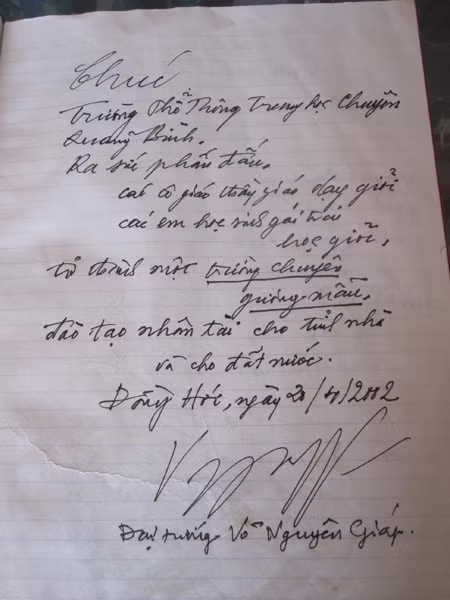 Chúc
Trường Phổ Thông Trung học Chuyên
Quảng Bình.
Ra sức phấn đấu,
các cô giáo thầy giáo dạy giỏi
các em học sinh gái trai
học giỏi,
trở thành một trường chuyên
gương mẫu,
đào tạo nhân tài cho tỉnh nhà
và cho đất nước.
Đồng Hới, ngày 20/4/2002
Đại tướng Võ Nguyên Giáp.